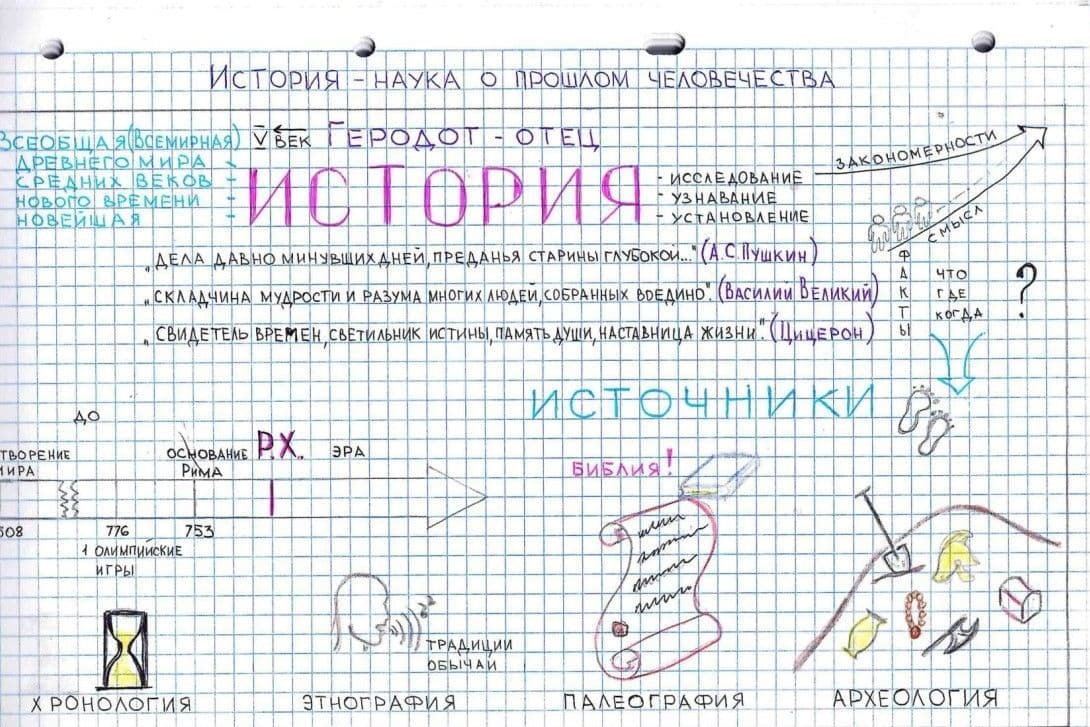 История – наука о прошлом человечества
Всеобщая (Всемирная)
Древнего мира -
Средних веков -
Нового времени -
Новейшая -
V век Геродот - отец
ИСТОРИЯ
- исследование
- узнавание
- установление
закономерности
смысл
факты
что
где
когда
?
„Дела давно минувших дней, преданья старины глубокой..." (А.С.Пушкин)
„Складчина мудрости и разума многих людей, собранных воедино". (Василий Великий)
„Свидетель времен, светильник истины, память души, наставница жизни". (Цицерон)
ИСТОЧНИКИ
до
творение
мира
основание
Рима
Р.Х.
эра
508
776
753
1 Олимпийские
игры
Библия!
традиции
обычаи
Хронология
Этнография
Палеография
Археология